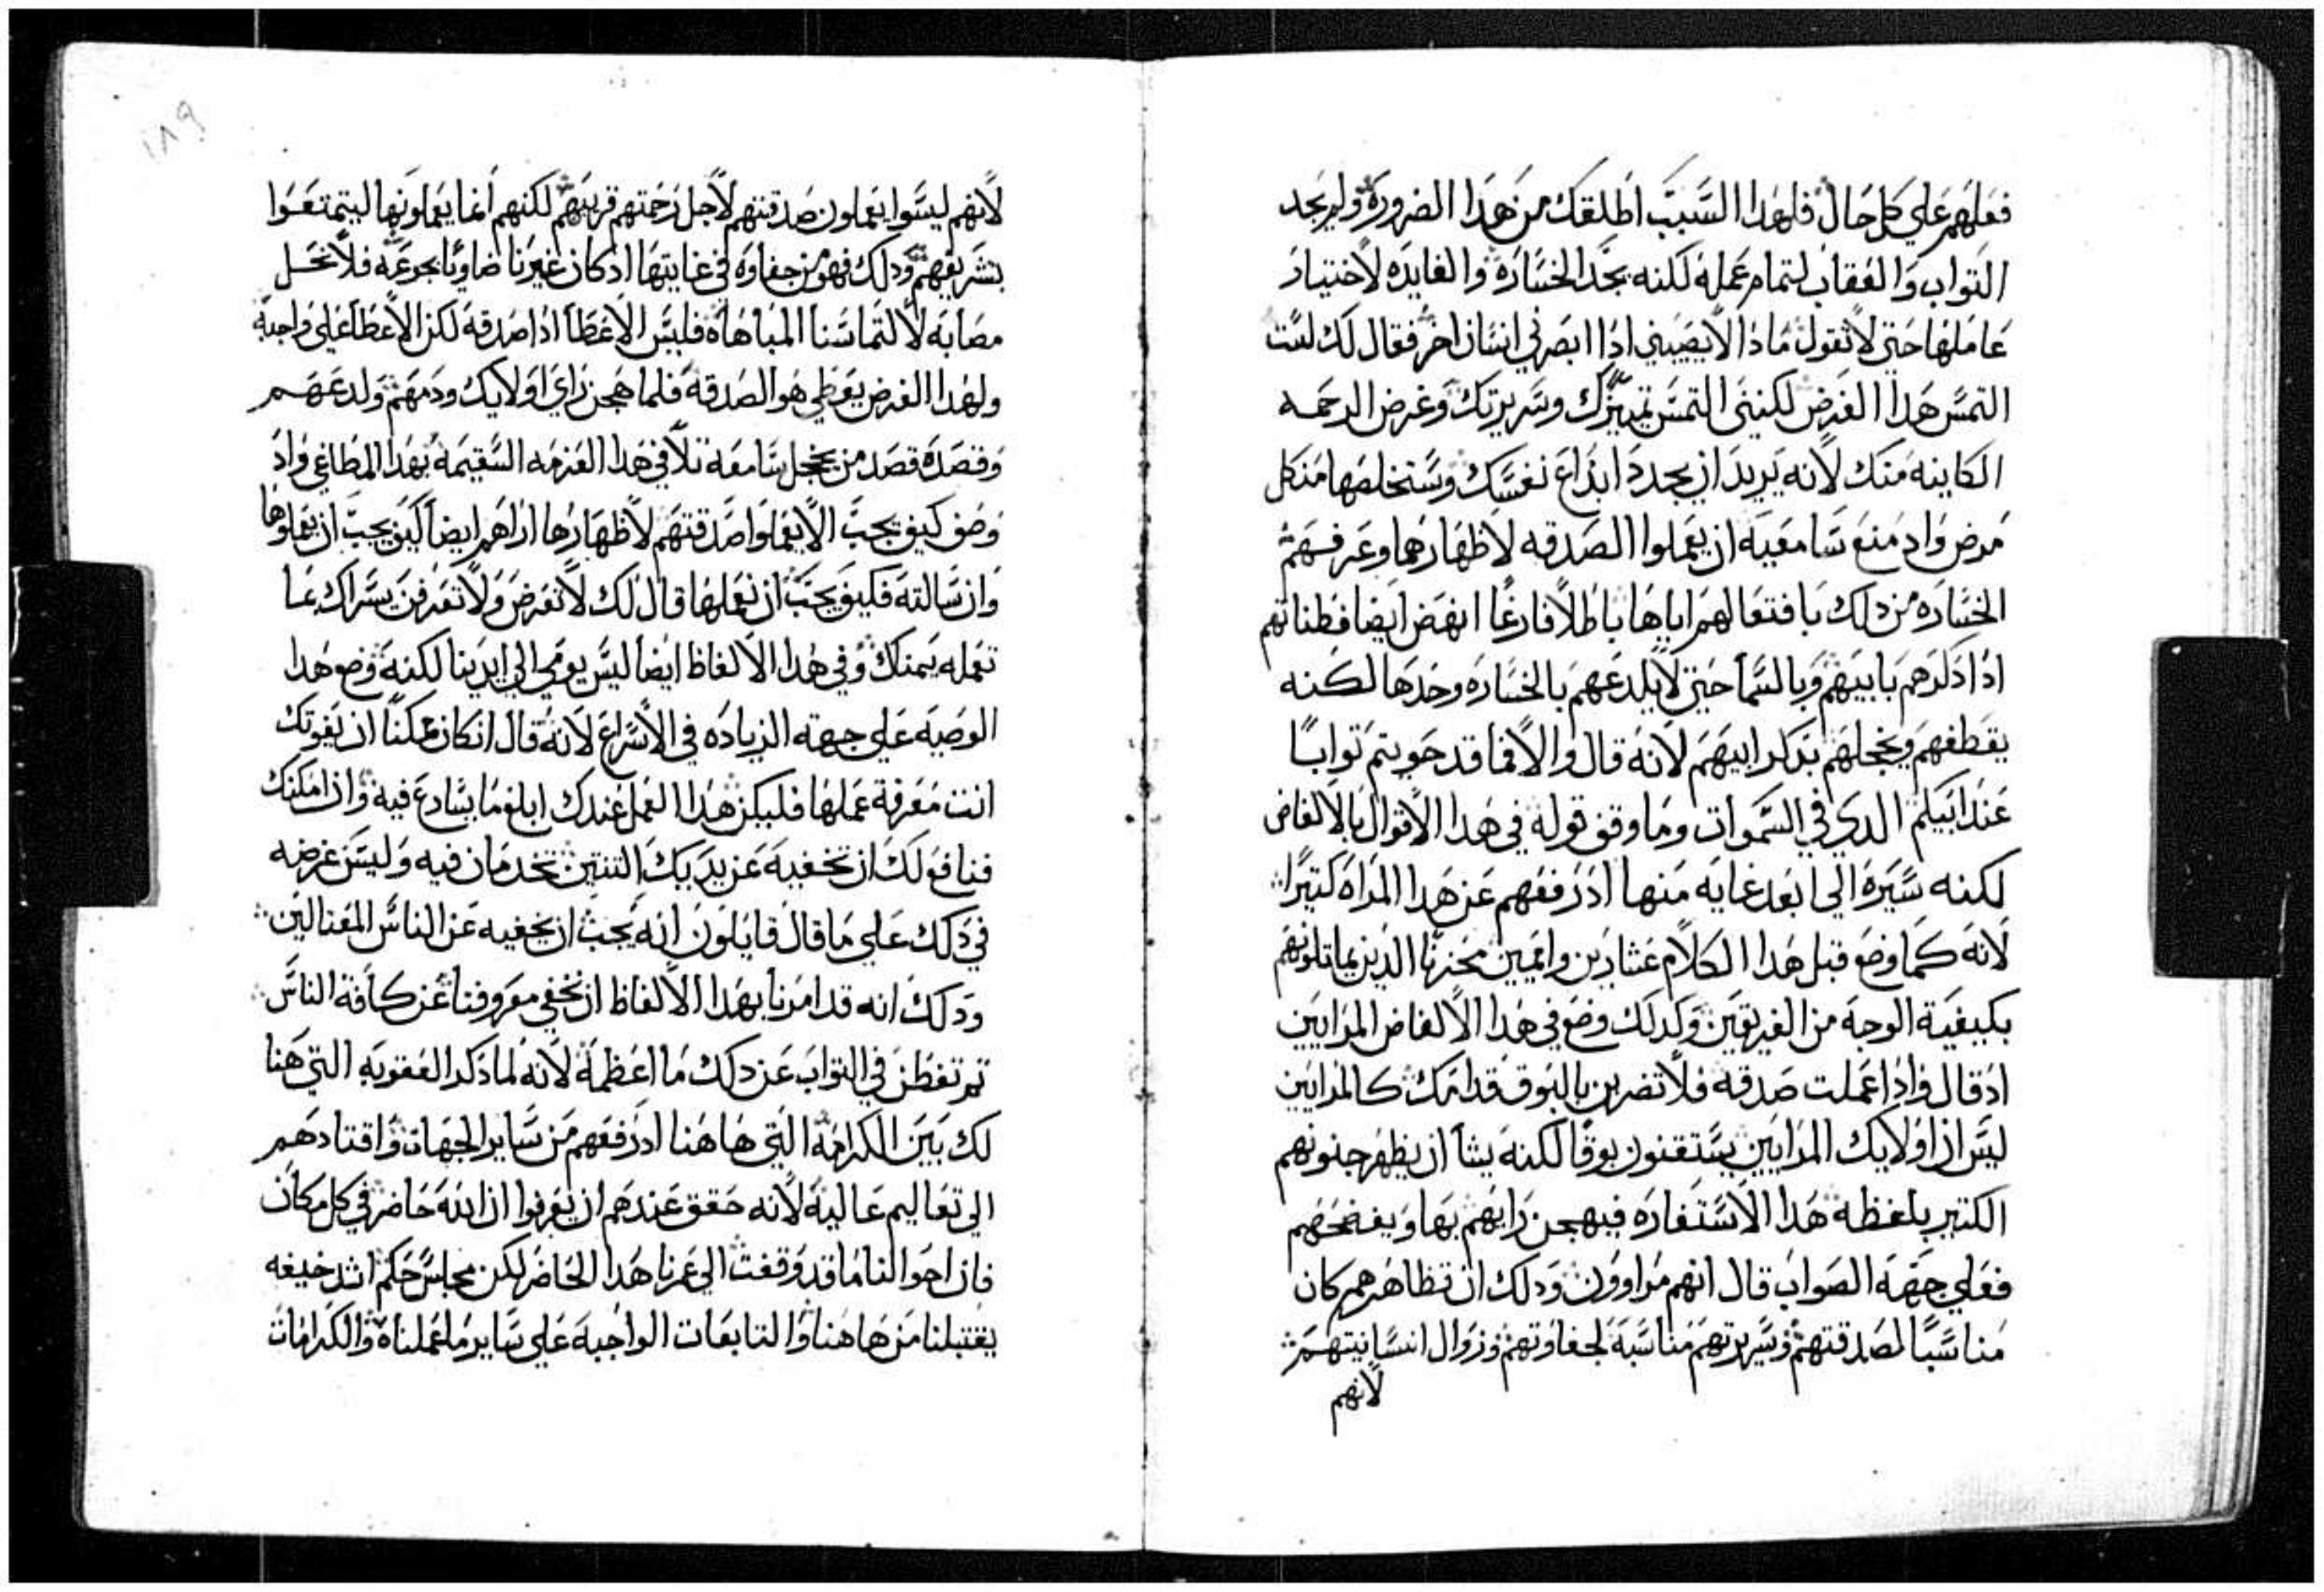 فعلهم على كل حال فلهدا السبب اطلقك من هدا الضرورة ولم يحد
التواب والعقاب لتمام عمله لكنه يحد الخسارة والفايده لاختيار
عاملها حتى لا تقول مادا الا يصيبني ادا ابصرني انسان اخر فقال لك لست
التمس هدا الغرض لكنني التمس تمييزك وسريرتك وغرض الرحمه
الكاينه منك لانه يريد ان يجدد ابداع نفسك وستخلصها من كل
مرض واد منع سامعيه ان يعملوا الصدقه لاظهارهما وعرفهم
الخساره من دلك بافتعالهم اياها باطلا فارغا انهض ايضا فطناتهم
ادا دكرهم بابيهم وبالسما حتى لا يلدعهم بالخساره وحدها لكنه
يقطفهم ويخجلهم بدكر ابيهم لانه قال والا فما قد حويتم توابا
عند ابيكم الدي في السموات وما وقف قوله في هدا الاقوال بالالفاض
لكنه سيره الى ابعد غايه منها اد رفعهم عن هدا المراه كتيرا
لانه كما وضع قبل هدا الكلام عشارين واميين محزنا الدين يماتلونهم
بكيفية الوجه من الفريقين وكدلك وضع في هدا الالفاض المرايين
اد قال وادا عملت صدقه فلا تضربن بالبوق قدامك كالمرايين
ليس ان اولايك المرايين يستقنون بوقا لكنه يشا ان يظهر جنونهم
الكتير بلفظة هدا الاستفاره فيهجن رايهم بها ويفضحهم
فعلى جهة الصواب قال انهم مراوون ودلك ان تظاهرهم كان
مناسبا لصدقتهم وسريرتهم مناسبة لجفاوتهم وزوال انسانيتهم
لانهم
لانهم ليسوا يعملون صدقتهم لاجل رحمتهم قريبهم لكنهم انما يعملونها ليتمتعوا
بتشريفهم ودلك فهو من جفاوه في غايتها اد كان غيرنا ضاويا بجوعه فلا نحل
مصابه لالتماسنا المباهاه فليس الاعطا ادا صدقه لكن الاعطا على واجبه
ولهدا الغرض يعطي هو الصدقه فلما هجن راي اولايك ودمهم ولدعهم
وقصده قصد من يخجل سامعه تلافي هدا العزمه السقيمه بهدا المطاغي واد
وصف كيف يجب الا يعملوا صدقتهم لاظهارها اراهم ايضا كيف يجب ان يعملوها
وان سالته فكيف يجب ان نعملها قال لك لا تعرض ولا تعرفن يسراك بما
تعمله يمنك وفي هدا الالفاظ ايضا ليس يومي الى ايدينا لكنه وضع هدا
الوصيه على جهته الزياده في الاسراع لانه قال ان كان ممكنا ان يفوتك
انت معرفة عملها فليكن هدا العمل عندك ابلغ ما يسارع فيه وان امكنك
فنافولك ان تخفيه عن يديك التنتين تخدمان فيه وليس غرضه
في دلك على ما قال قايلون انه يجب ان يخفيه عن الناس المغتالين
ودلك انه قد امرنا بهدا الالفاظ ان نخفي معروفنا عن كافة الناس
تم تفطن في التواب عن دلك ما اعظمه لانه لما دكر العقوبه التي هنا
لك بين الكرامه التي هاهنا اد رفعهم من ساير الجهات واقتادهم
الى تعاليم عاليه لانه حقق عندهم ان يعرفوا ان الله حاضر في كل مكان
فان احوالنا ما قد وقفت الى عمرنا هدا الحاضر لكن مجلس حكم اشد خيفه
يقتبلنا من هاهنا والتابعات الواجبه على ساير ما عملناه والكرامات